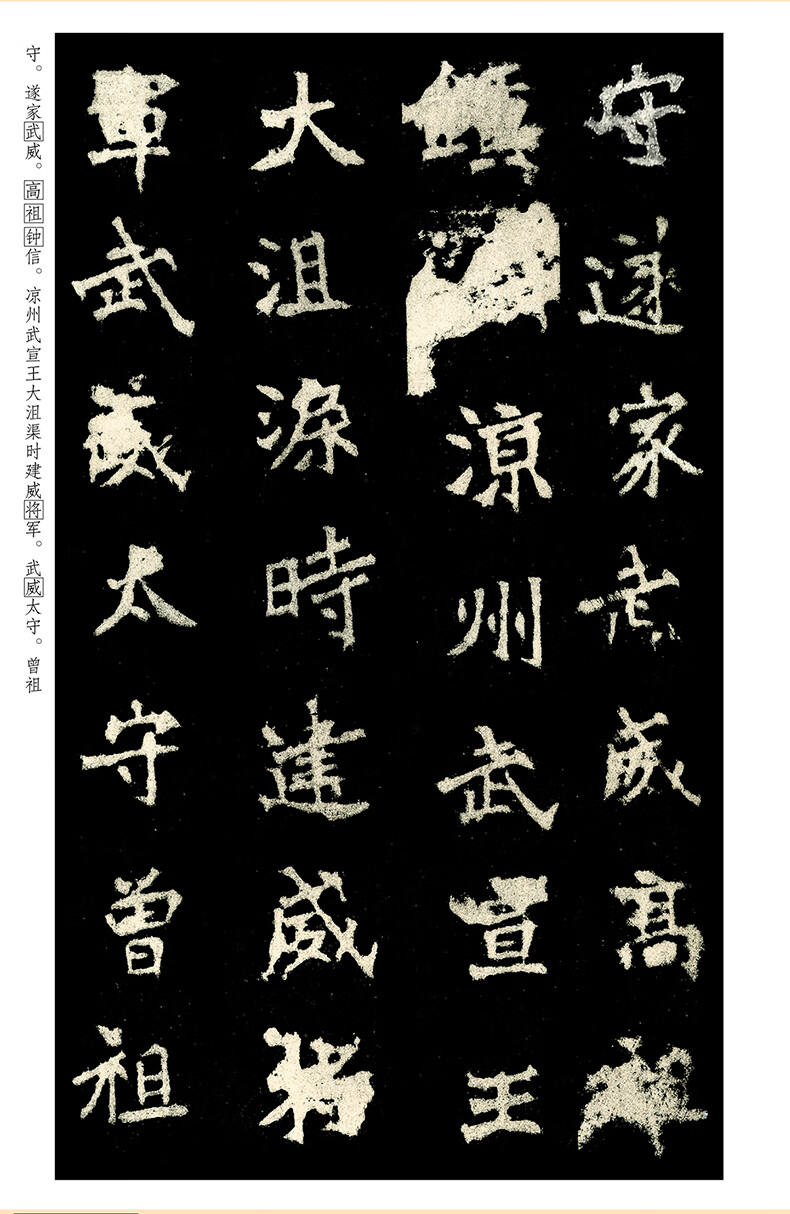 守遂家武威高祖
鍾□涼州武宣王
大沮渠時建威將
軍武威太守曾祖
守。遂家武威。高祖钟信。凉州武宣王大沮渠时建威将军。武威太守。曾祖